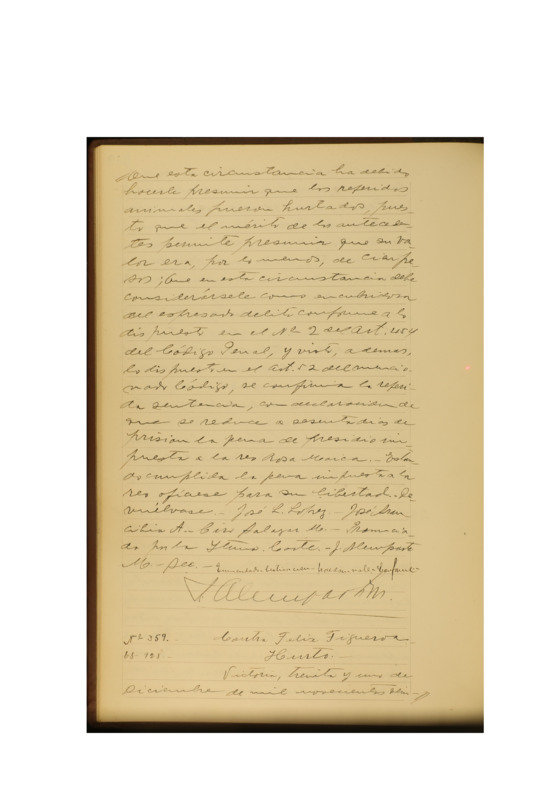 Que esta circunstancia ha debido
hacerle presumir que los referidos
animales fueron hurtados, pues-
to que el mérito de los antecede
tes permite presumir que su va-
lor era, por lo menos, de cien pe-
sos; Que en esta circunstancia debe
considerársele como encubridora
del espresado delito conforme a lo
dispuesto en el No 2 del Art. 454
del Código Penal, y visto, ademas,
lo dispuesto en el art. 52 del mencio-
nado Código, se confirma la referi-
da sentencia, con declaracion de
que se reduce a sesenta dias de
prision la pena de presidio im-
puesta a la reo Rosa Marca. - Estan
do cumplida la pena impuesta a la
reo ofíciese para su libertad. De-
vuélvase. - José L. López - José
A. - Ciro Salazar M. - Pronuncia-
do por la Iltma. Corte. - J. Alempart
M - Sec. -
J Alempart M.
No 359. Contra Felix Figueroa
Hurto. -
Victoria, treinta y uno de
Diciembre de mil novecientos